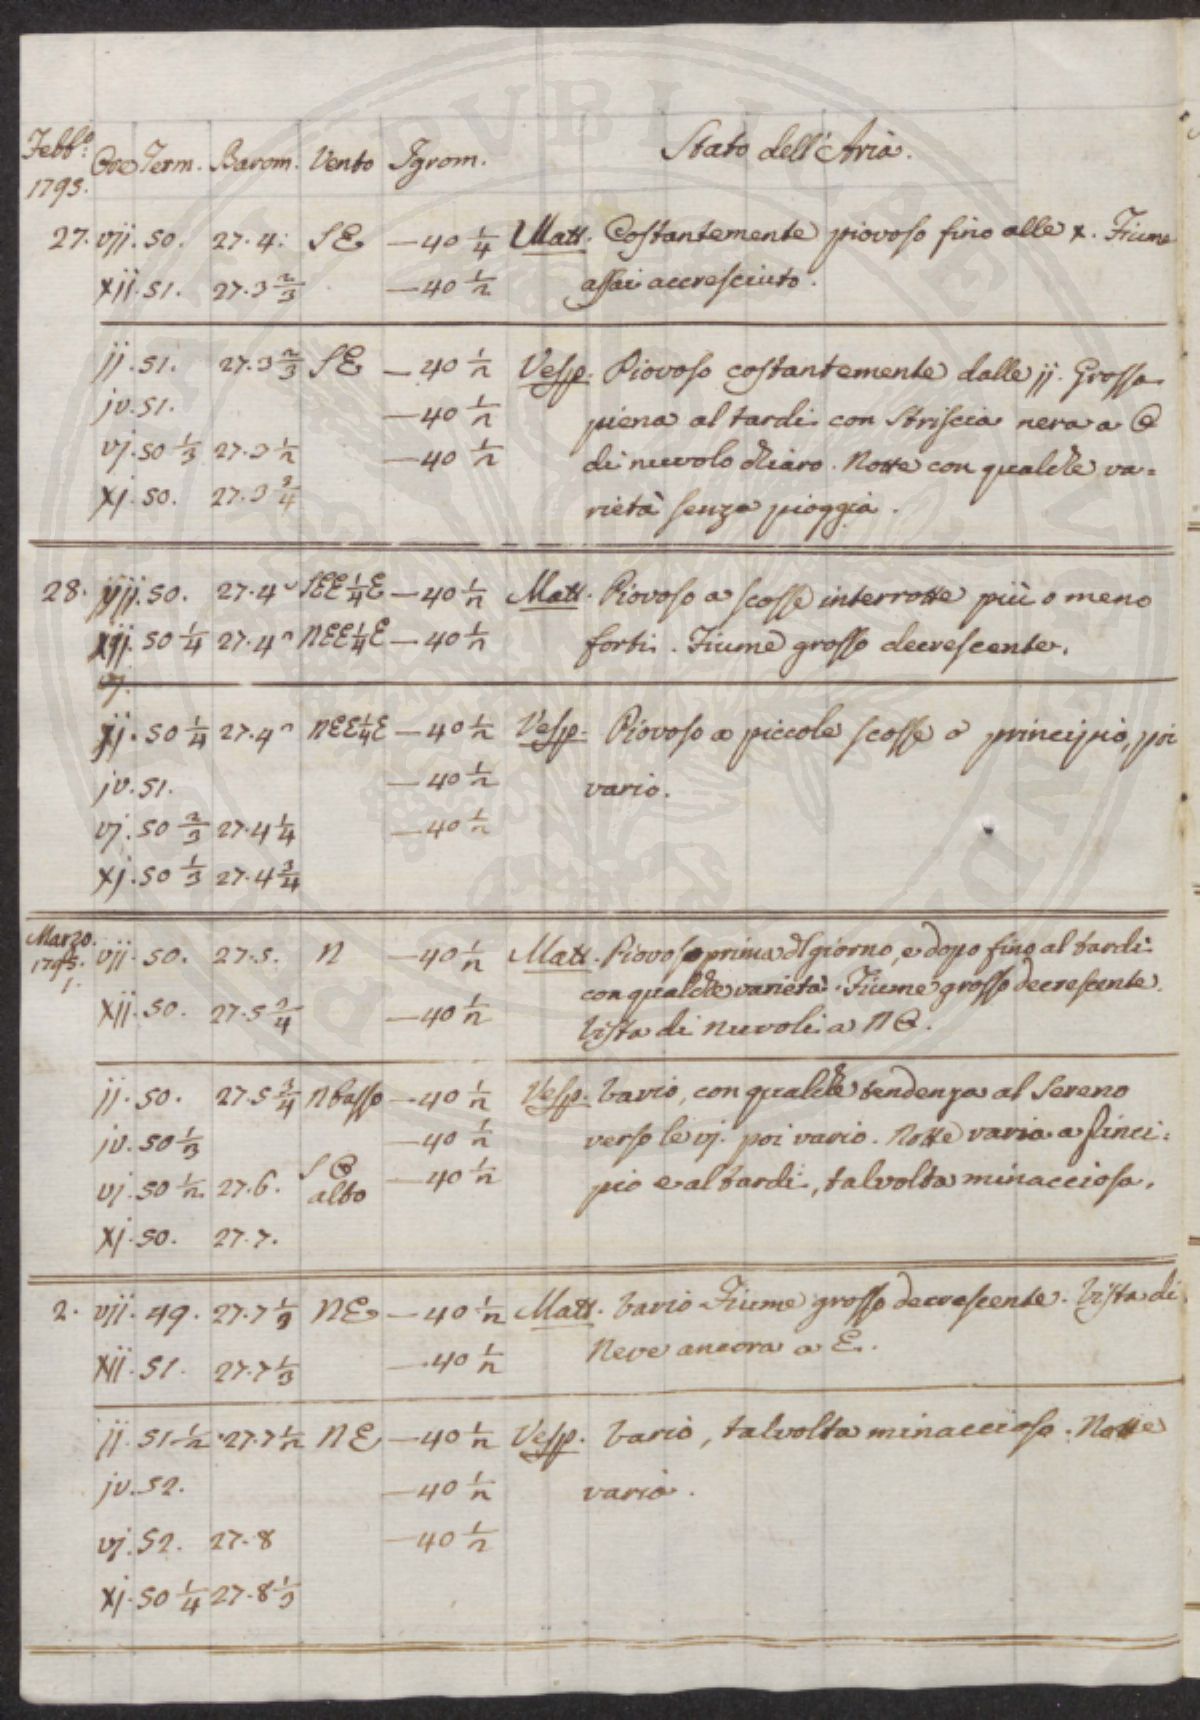 Febb.º Ore Term. Barom. Vento Igrom. Stato dell'Aria.
1795.
27. vij. 50. 27.4. SE —40 1/4 Matt. Costantemente piovoso fino alle x. Fiume
xij. 51. 27.3 2/3 —40 1/2 assai accresciuto.
ij. 51. 27.3 2/3 SE —40 1/2 Vesp. Piovoso costantemente dalle ij. Grossa
iv. 51. —40 1/2 piena al tardi con striscia nera a O
vj. 50 1/3 27.3 1/2 —40 1/2 di nuvolo chiaro. Notte con qualche va=
xj. 50. 27.3 3/4 rietà senza pioggia.
28. vij. 50. 27.4 SEE 1/4 E —40 1/2 Matt. Piovoso a scosse interrotte più o meno
xij. 50 1/4 27.4 NEE 1/4 E —40 1/2 forti. Fiume grosso decrescente.
ij. 50 1/4 27.4 NEE 1/4 E —40 1/2 Vesp. Piovoso a piccole scosse a principio, poi
iv. 51. —40 1/2 vario.
vj. 50 2/3 27.4 1/4 —40 1/2
xj. 50 1/3 27.4 3/4
Marzo.
1795. vij. 50. 27.5. N —40 1/2 Matt. Piovoso prima dl giorno, e dopo fino al tardi
1. con qualche varietà. Fiume grosso decrescente.
xij. 50. 27.5 3/4 —40 1/2 Vista di nuvoli a NO.
ij. 50. 27.5 3/4 N basso —40 1/2 Vesp. Vario, con qualche tendenza al Sereno
iv. 50 1/3 —40 1/2 verso le vj. poi vario. Notte varia a princi=
vj. 50 1/2 27.6. SO alto —40 1/2 pio e al tardi, talvolta minacciosa.
xj. 50. 27.7.
2. vij. 49. 27.7 1/3 NE —40 1/2 Matt. Vario. Fiume grosso decrescente. Vista di
xij. 51. 27.7 1/3 —40 1/2 Neve ancora a E.
ij. 51 1/2 27.7 1/2 NE —40 1/2 Vesp. Vario, talvolta minaccioso. Notte
iv. 52. —40 1/2 varia.
vj. 52. 27.8 —40 1/2
xj. 50 1/4 27.8 1/3